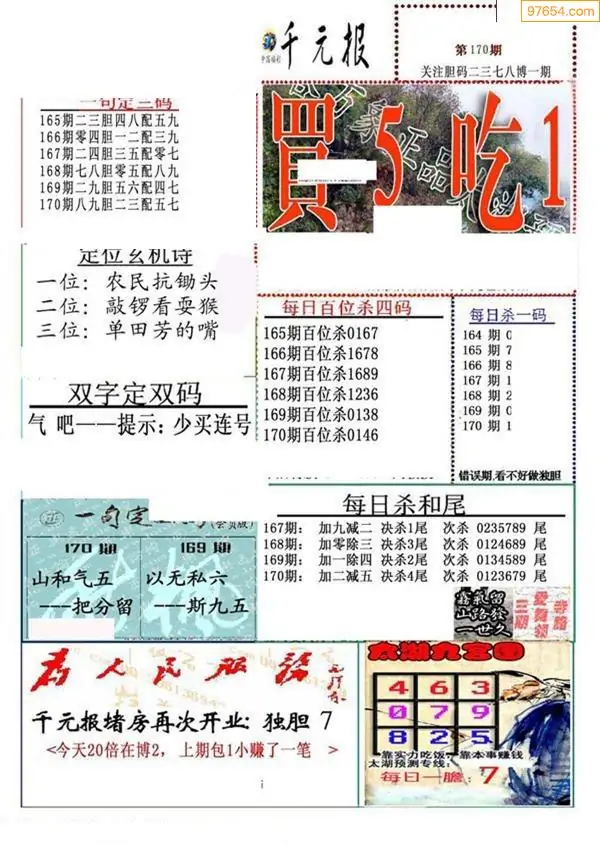 97654.com
中国福彩
千元报
第170期
关注胆码二三七八博一期
一句定三码
165期二三胆四八配五九
166期零四胆一二配三九
167期二四胆三五配零七
168期七八胆零五配八九
169期二九胆五六配四七
170期八九胆二三配五七
買5吃1
定位玄机诗
一位：农民抗锄头
二位：敲锣看耍猴
三位：单田芳的嘴
每日百位杀四码
165期百位杀0167
166期百位杀1678
167期百位杀1689
168期百位杀1236
169期百位杀0138
170期百位杀0146
每日杀一码
164 期 0
165 期 7
166 期 8
167 期 1
168 期 2
169 期 0
170 期 1
错误期,看不好做独胆
双字定双码
气 吧——提示：少买连号
一句定
(会员版)
170期
山和气五
---把分留
169期
以无私六
---斯九五
每日杀和尾
167期： 加九减二 决杀1尾 次杀 0235789 尾
168期： 加零除三 决杀3尾 次杀 0124689 尾
169期： 加一除四 决杀2尾 次杀 0134589 尾
170期： 加二减五 决杀4尾 次杀 0123679 尾
为人民服务
千元报堵房再次开业：独胆 7
<今天20倍在博2，上期包1小赚了一笔 >
太湖九宫图
4 6 3
0 7 9
8 2 5
靠实力吃饭，靠本事赚钱
太湖预测专线：
每日一胆：7